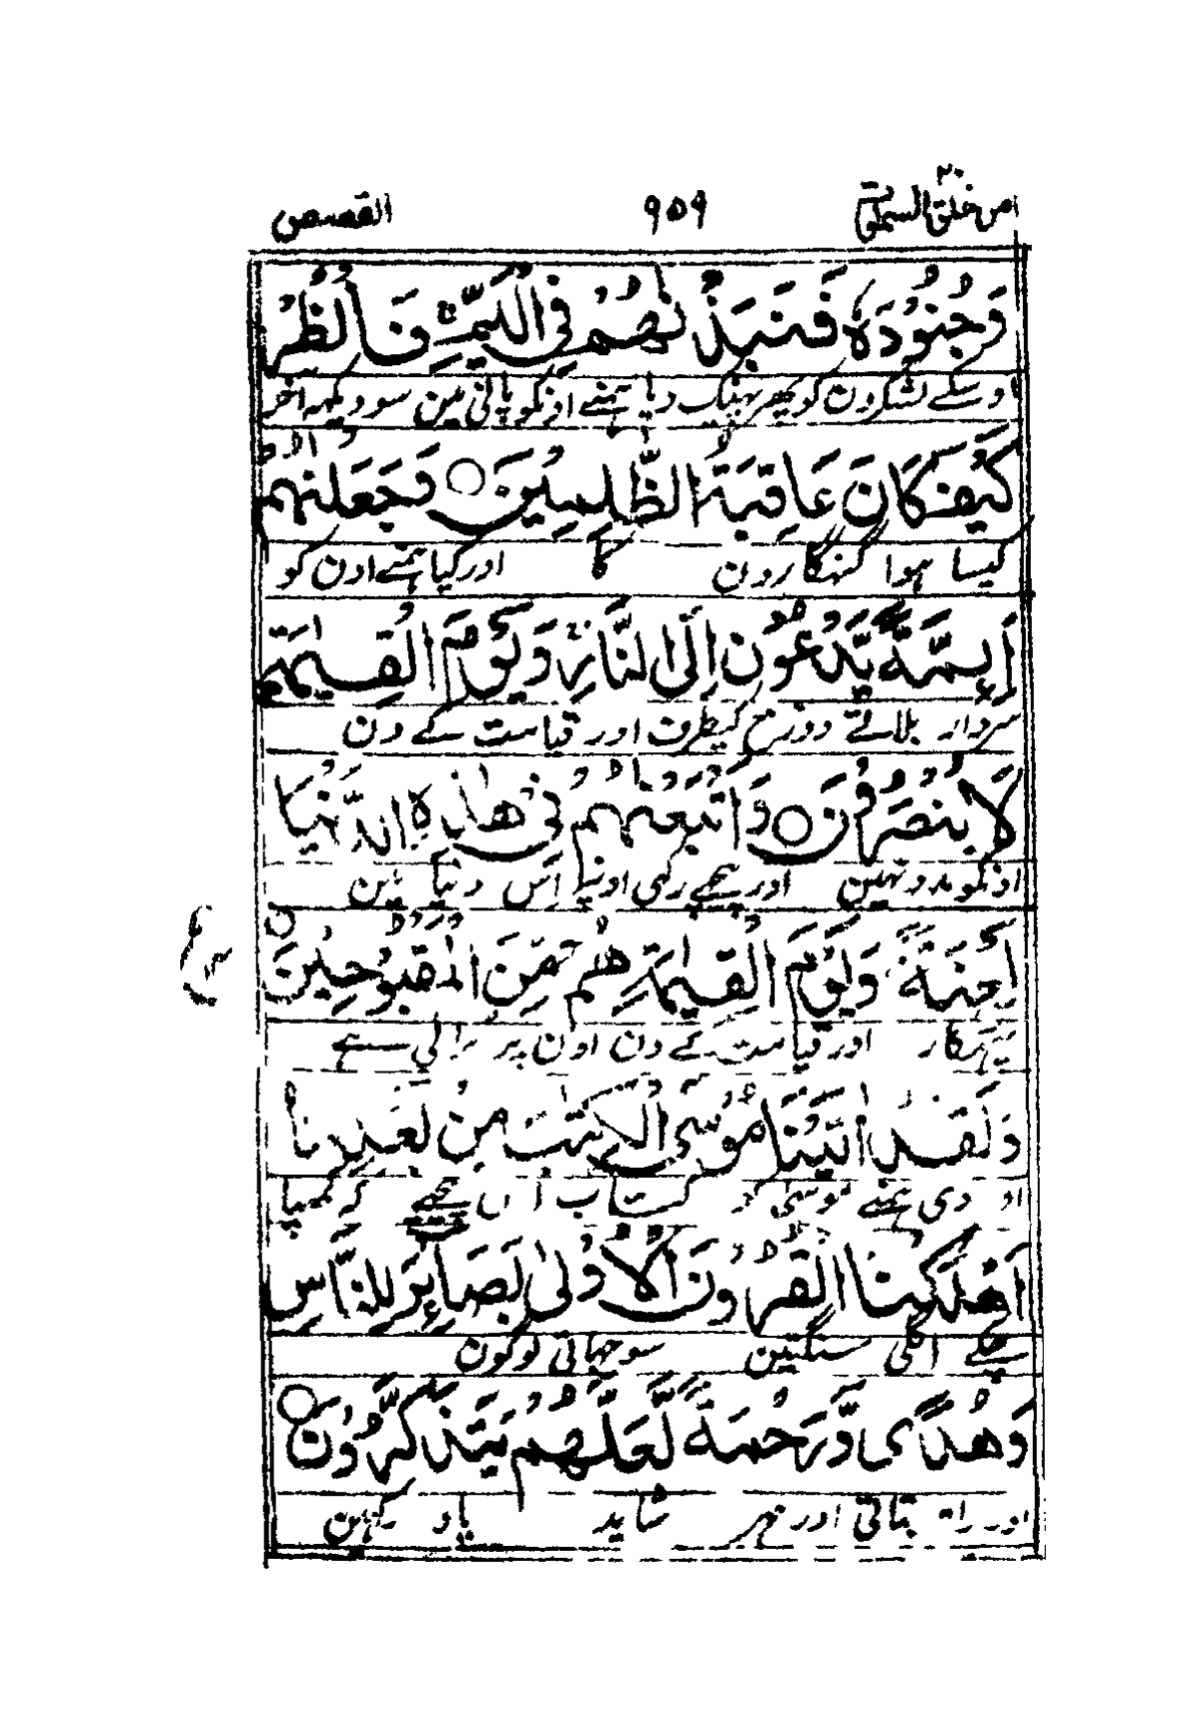 امن خلق السموت ٢٠ ٩٥٩ القصص
وَجُنُوْدَهٗ فَنَبَذْنٰهُمْ فِى الْيَمِّ ۚ فَانْظُرْ
اوسکے لشکرون کو پھر پھینک دیا ہمنے اونکو پانی مین سو دیکھہ آخر
كَيْفَ كَانَ عَاقِبَةُ الظّٰلِمِيْنَ ○ وَجَعَلْنٰهُمْ
کیسا ہوا گنہگارون کا اور کیا ہمنے اون کو
اَئِمَّةً يَّدْعُوْنَ اِلَى النَّارِ ۚ وَيَوْمَ الْقِيٰمَةِ
سردار بلاتے دوزخ کیطرف اور قیامت کے دن
لَا يُنْصَرُوْنَ ○ وَاَتْبَعْنٰهُمْ فِىْ هٰذِهِ الدُّنْيَا
اونکو مدد نہین اور پیچھے رکھی اونپر اس دنیا مین
لَعْنَةً ۚ وَيَوْمَ الْقِيٰمَةِ هُمْ مِّنَ الْمَقْبُوْحِيْنَ ○
پھٹکار اور قیامت کے دن اون پر برائی ہے
ع
وَلَقَدْ اٰتَيْنَا مُوْسَى الْكِتٰبَ مِنْ بَعْدِ مَآ
اور دی ہمنے موسی کو کتاب اس پیچھے کہ کھپا
اَهْلَكْنَا الْقُرُوْنَ الْاُوْلٰى بَصَآئِرَ لِلنَّاسِ
چکے اگلی سنگتین سوجھاتی لوگون
وَهُدًى وَّرَحْمَةً لَّعَلَّهُمْ يَتَذَكَّرُوْنَ ○
اور راہ بتاتی اور مہر شاید یاد رکھین